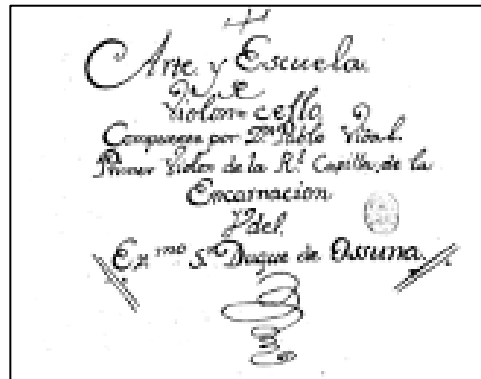 Arte y Escuela
De
Violon-cello
Compuesto por Dn. Pablo Vidal.
Primer Violon de la Rl. Capilla de la
Encarnacion
Y del
Exmo Sr. Duque de Ossuna